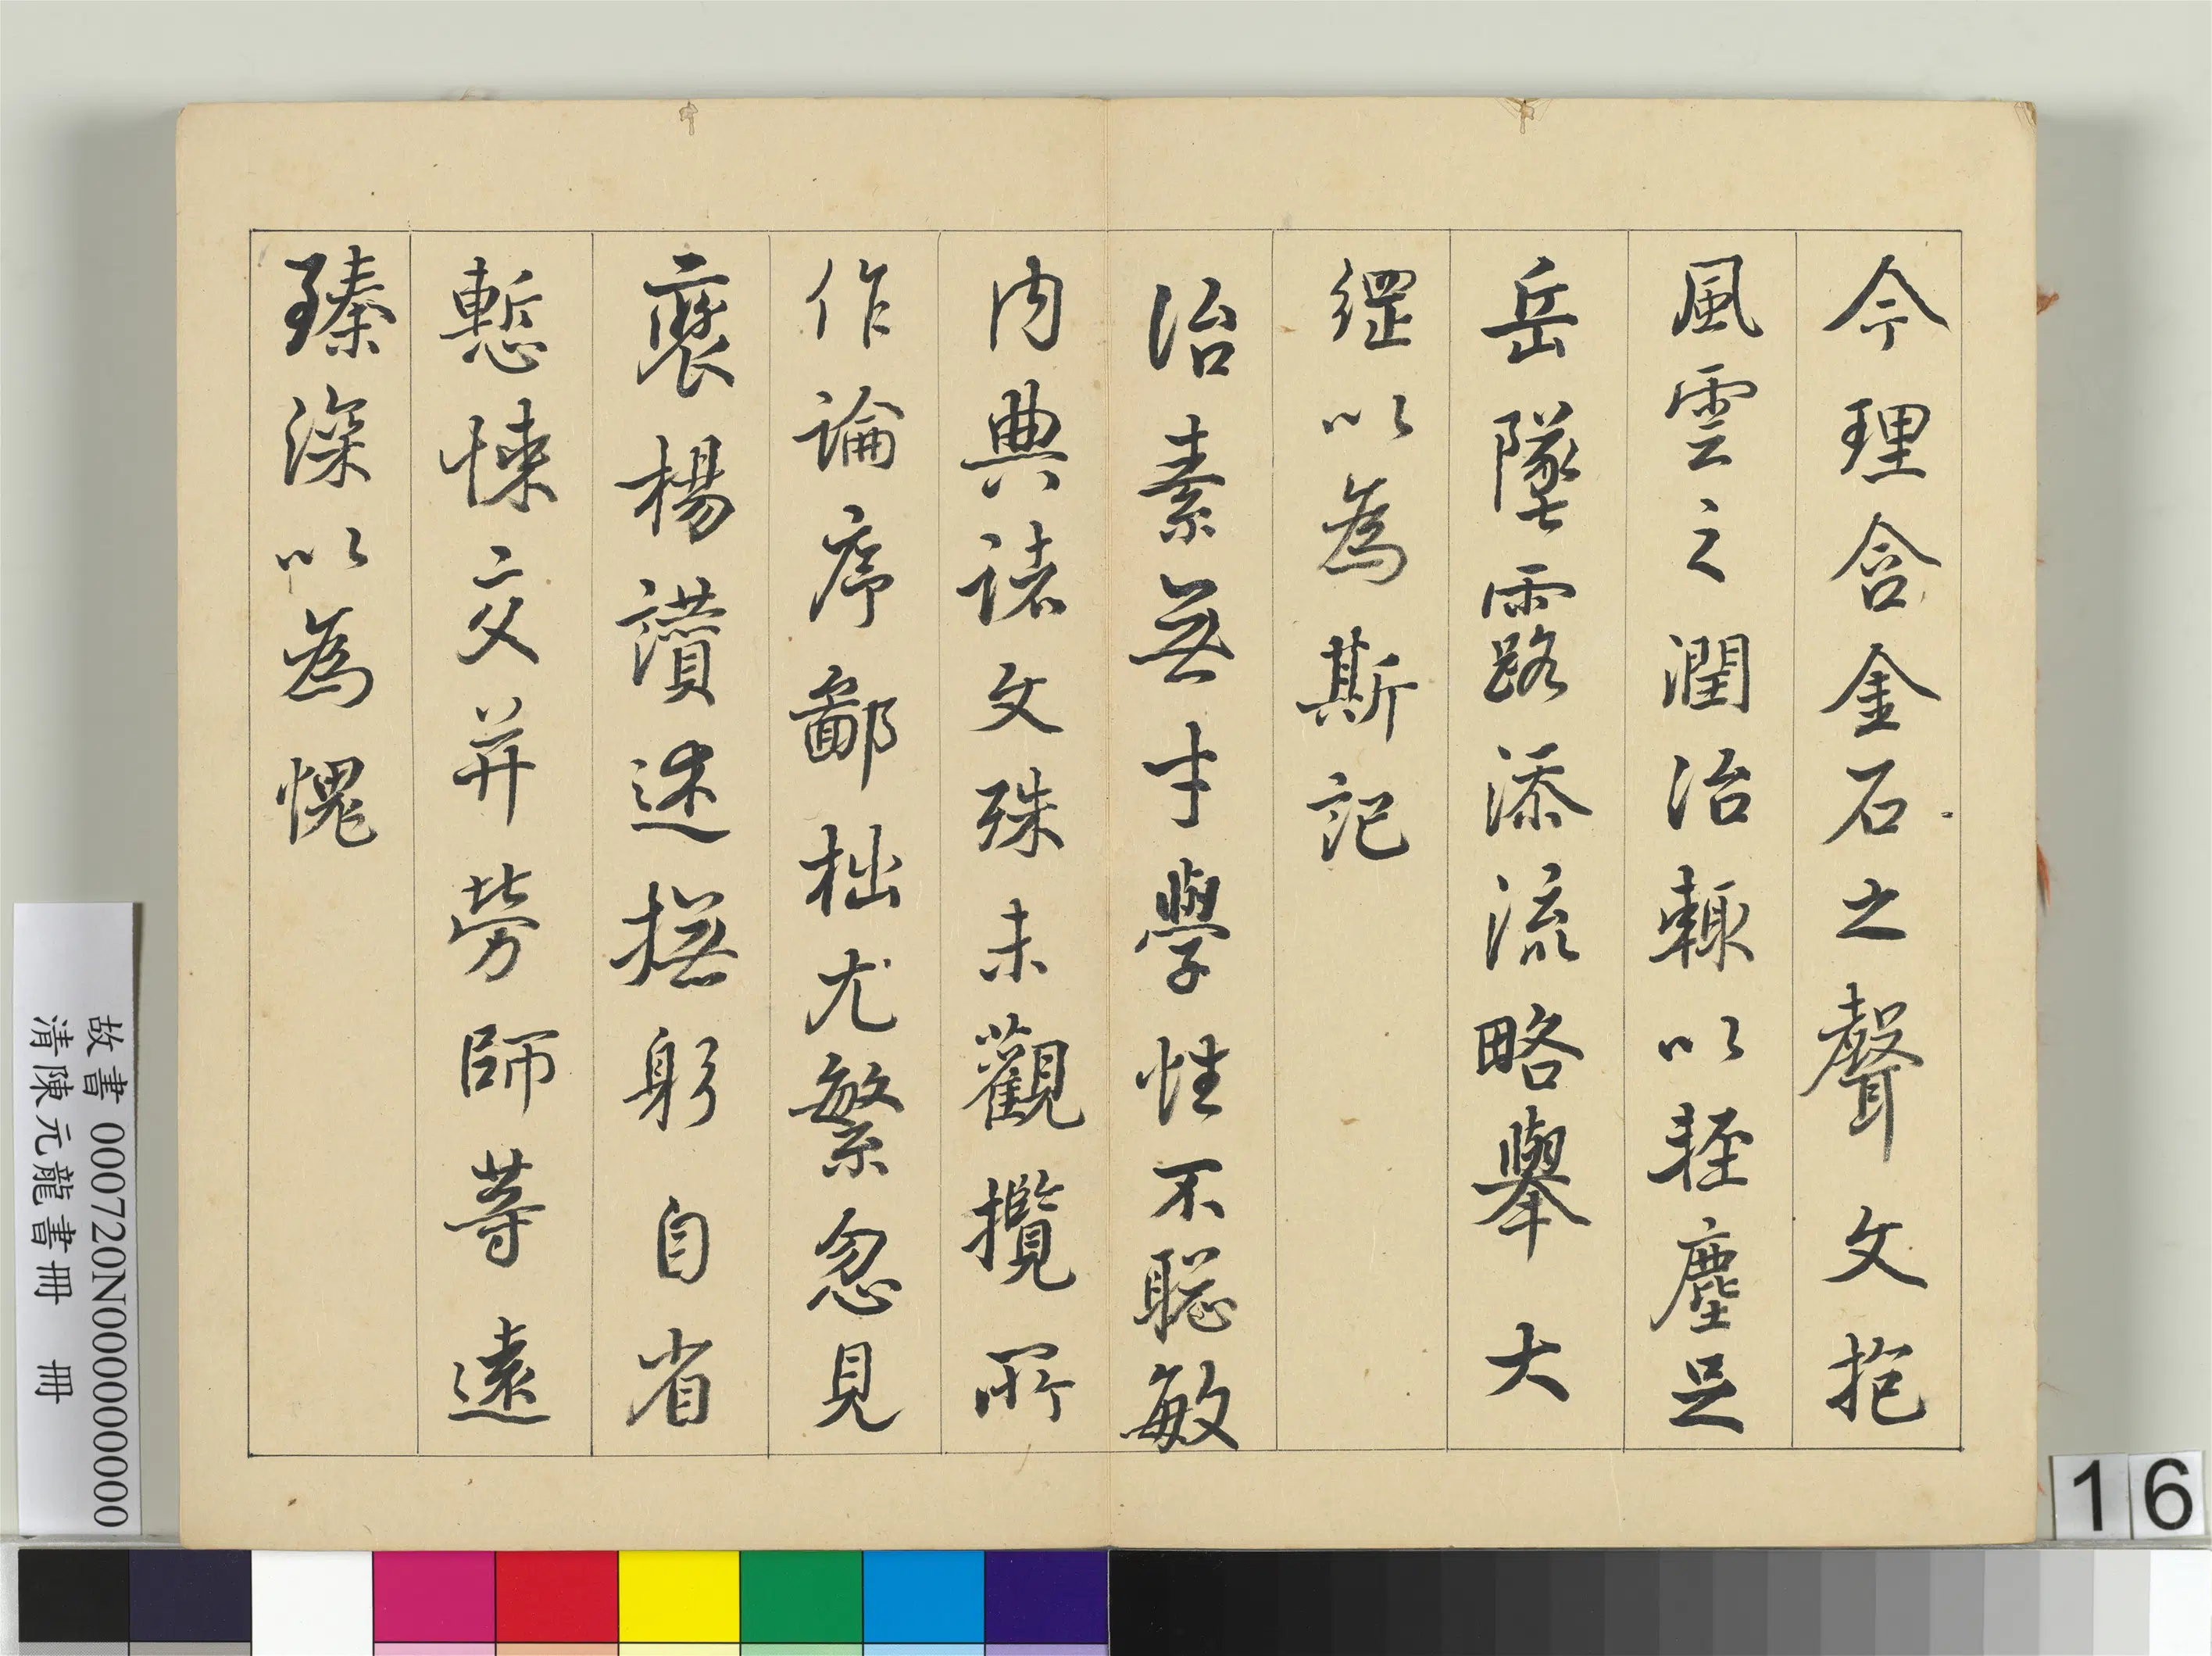 今理含金石之聲文抱
風雲之潤治輙以輕塵足
岳墜露添流略舉大
綱以為斯記
治素無才學性不聡敏
内典諸文殊未觀攬所
作論序鄙拙尤繁忽見
褒楊讚述撫躬自省
慙悚交并勞師等遠
臻深以為愧
故書 000720N000000000
清陳元龍書冊 冊
16